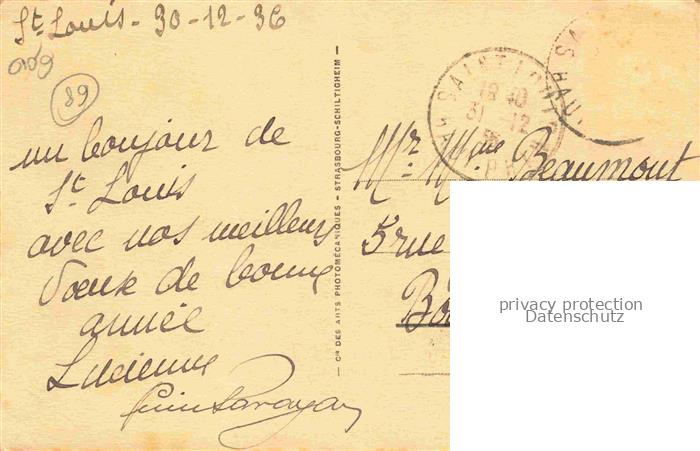 St Louis - 30-12-36
89
un bonjour de
St Louis
avec nos meilleurs
Voeux de bonne
année
Lucienne
Cie DES ARTS PHOTOMÉCANIQUES - STRASBOURG-SCHILTIGHEIM -
SAINT-LOUIS
18 40
31 -12
HAUT
Mr Mme Beaumont
5 rue
privacy protection
Datenschutz